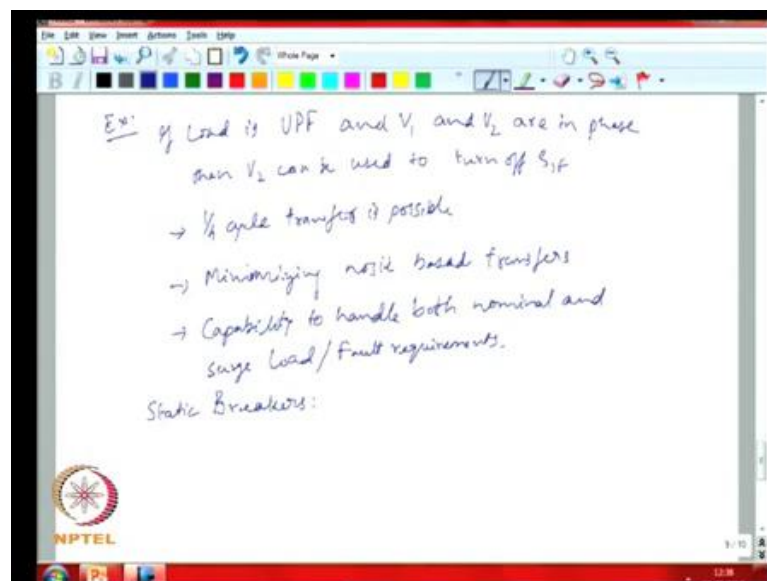 File Edit View Insert Actions Tools Help
Whole Page
B I
Ex: If Load is UPF and V1 and V2 are in phase
then V2 can be used to turn off S1F
→ 1/4 cycle transfer is possible
→ Minimizing noise based transfers
→ Capability to handle both nominal and
surge load/Fault requirements.
Static Breakers:
NPTEL
9/10
12:38